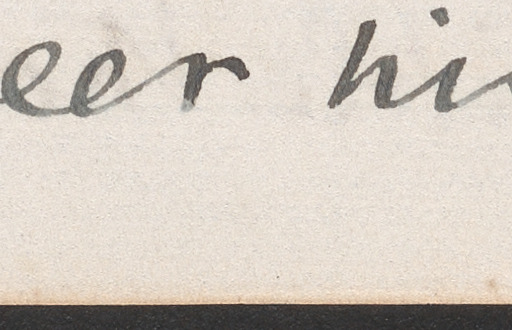 eer hi